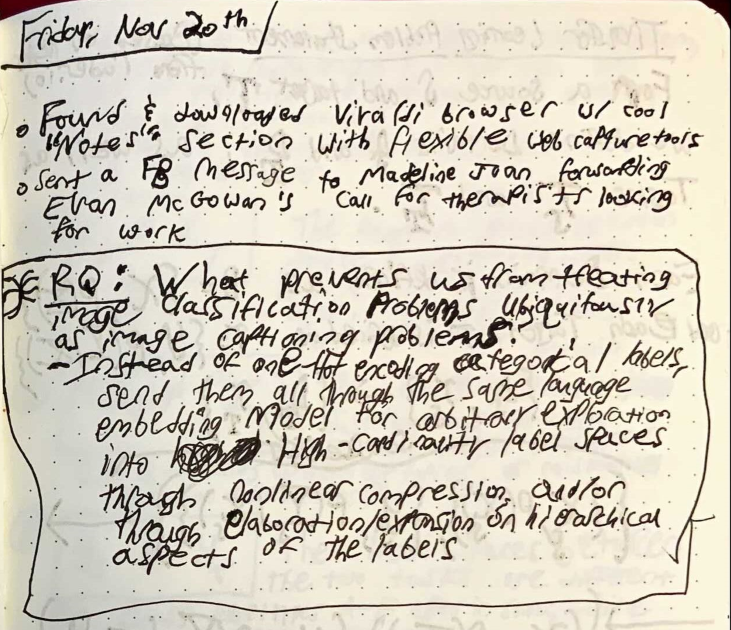 Friday, Nov 20th
o Found & downloaded Viraldi browser w/ cool
"Notes" section with flexible web capture tools
o Sent a FB message to Madeline Joan forwarding
Evan McGowan's call for therapists looking
for work
RQ: What prevents us from treating
image classification problems ubiquitously
as image captioning problems?
- Instead of one-hot encoding categorical labels,
send them all through the same language
embedding model for arbitrary exploration
into High-cardinality label spaces
through nonlinear compression and/or
through elaboration/extension on hierarchical
aspects of the labels